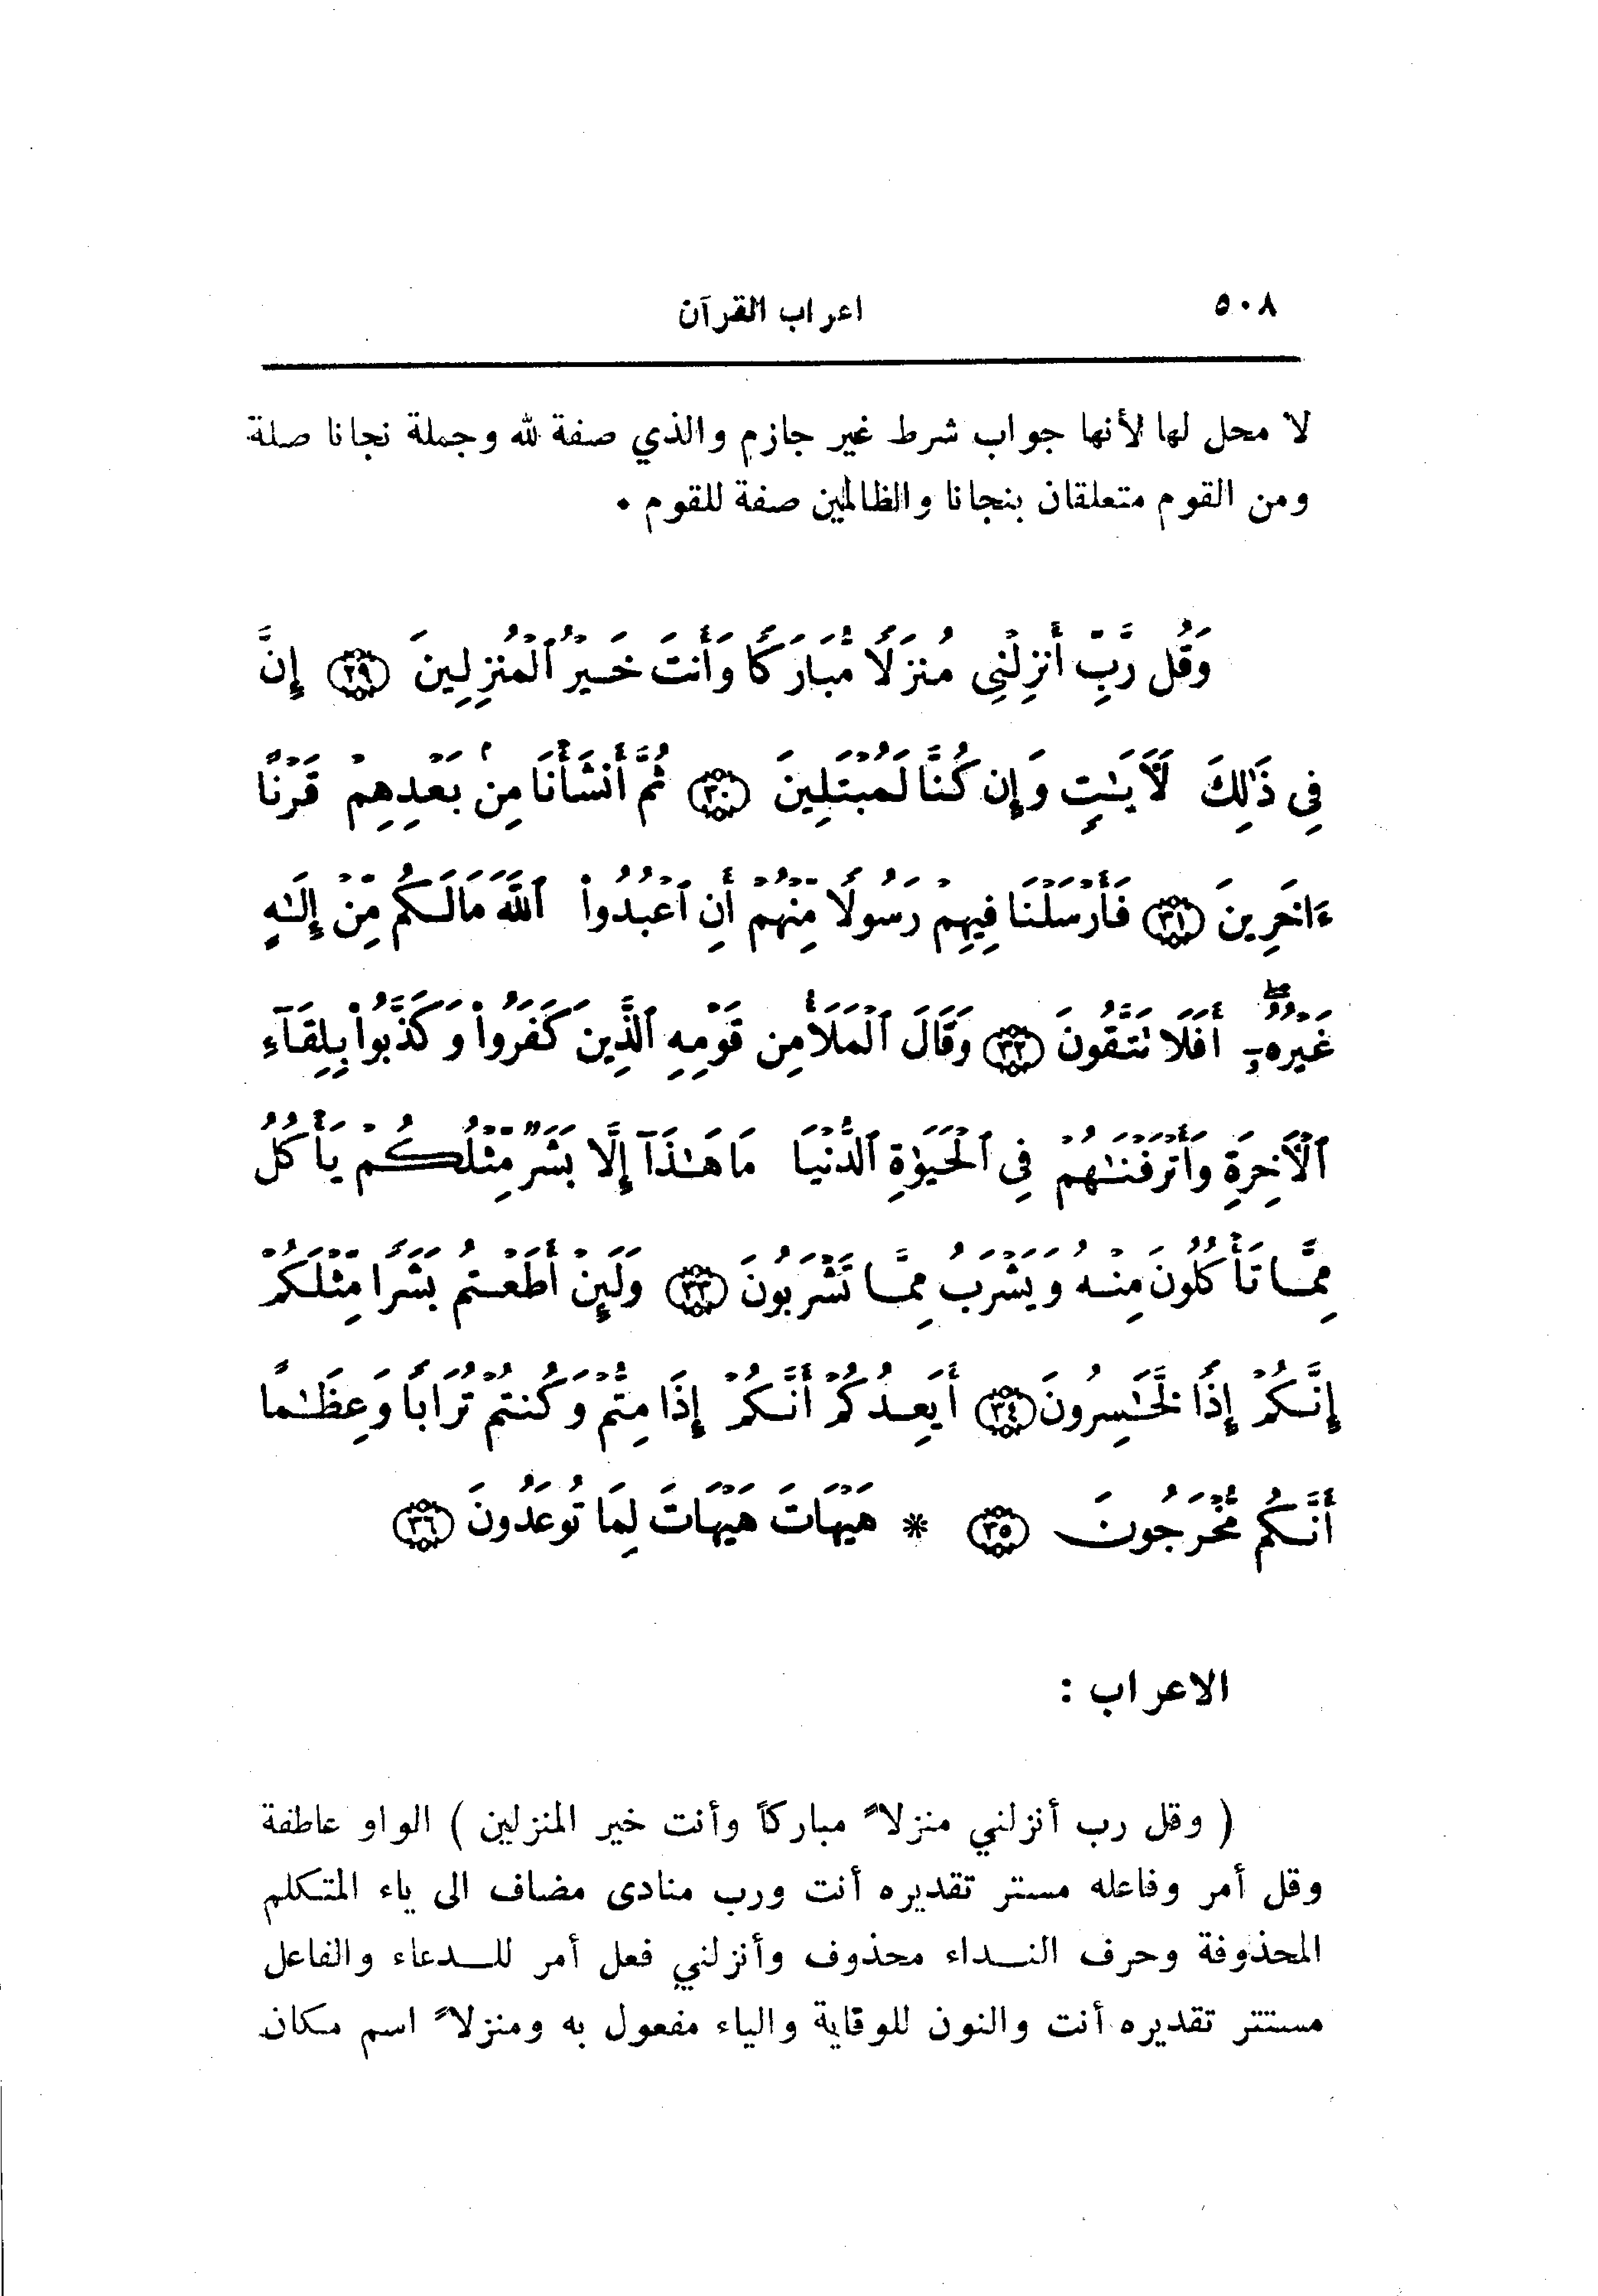 ٥٠٨ اعراب القرآن
لا محل لها لأنها جواب شرط غير جازم والذي صفة لله وجملة نجانا صلة
ومن القوم متعلقان بنجانا والظالمين صفة للقوم ٠
وَقُل رَّبِّ أَنزِلْنِى مُنزَلًا مُّبَارَكًا وَأَنتَ خَيْرُ ٱلْمُنزِلِينَ ﴿٢٩﴾ إِنَّ
فِى ذَٰلِكَ لَـَٔايَـٰتٍ وَإِن كُنَّا لَمُبْتَلِينَ ﴿٣٠﴾ ثُمَّ أَنشَأْنَا مِنۢ بَعْدِهِمْ قَرْنًا
ءَاخَرِينَ ﴿٣١﴾ فَأَرْسَلْنَا فِيهِمْ رَسُولًا مِّنْهُمْ أَنِ ٱعْبُدُوا۟ ٱللَّهَ مَا لَكُم مِّنْ إِلَـٰهٍ
غَيْرُهُۥٓ ۖ أَفَلَا تَتَّقُونَ ﴿٣٢﴾ وَقَالَ ٱلْمَلَأُ مِن قَوْمِهِ ٱلَّذِينَ كَفَرُوا۟ وَكَذَّبُوا۟ بِلِقَآءِ
ٱلْـَٔاخِرَةِ وَأَتْرَفْنَـٰهُمْ فِى ٱلْحَيَوٰةِ ٱلدُّنْيَا مَا هَـٰذَآ إِلَّا بَشَرٌ مِّثْلُكُمْ يَأْكُلُ
مِمَّا تَأْكُلُونَ مِنْهُ وَيَشْرَبُ مِمَّا تَشْرَبُونَ ﴿٣٣﴾ وَلَئِنْ أَطَعْتُم بَشَرًا مِّثْلَكُمْ
إِنَّكُمْ إِذًا لَّخَـٰسِرُونَ ﴿٣٤﴾ أَيَعِدُكُمْ أَنَّكُمْ إِذَا مِتُّمْ وَكُنتُمْ تُرَابًا وَعِظَـٰمًا
أَنَّكُم مُّخْرَجُونَ ﴿٣٥﴾ * هَيْهَاتَ هَيْهَاتَ لِمَا تُوعَدُونَ ﴿٣٦﴾
الاعراب :
( وقل رب أنزلني منزلاً مباركاً وأنت خير المنزلين ) الواو عاطفة
وقل أمر وفاعله مستتر تقديره أنت ورب منادى مضاف الى ياء المتكلم
المحذوفة وحرف النداء محذوف وأنزلني فعل أمر للدعاء والفاعل
مستتر تقديره أنت والنون للوقاية والياء مفعول به ومنزلاً اسم مكان